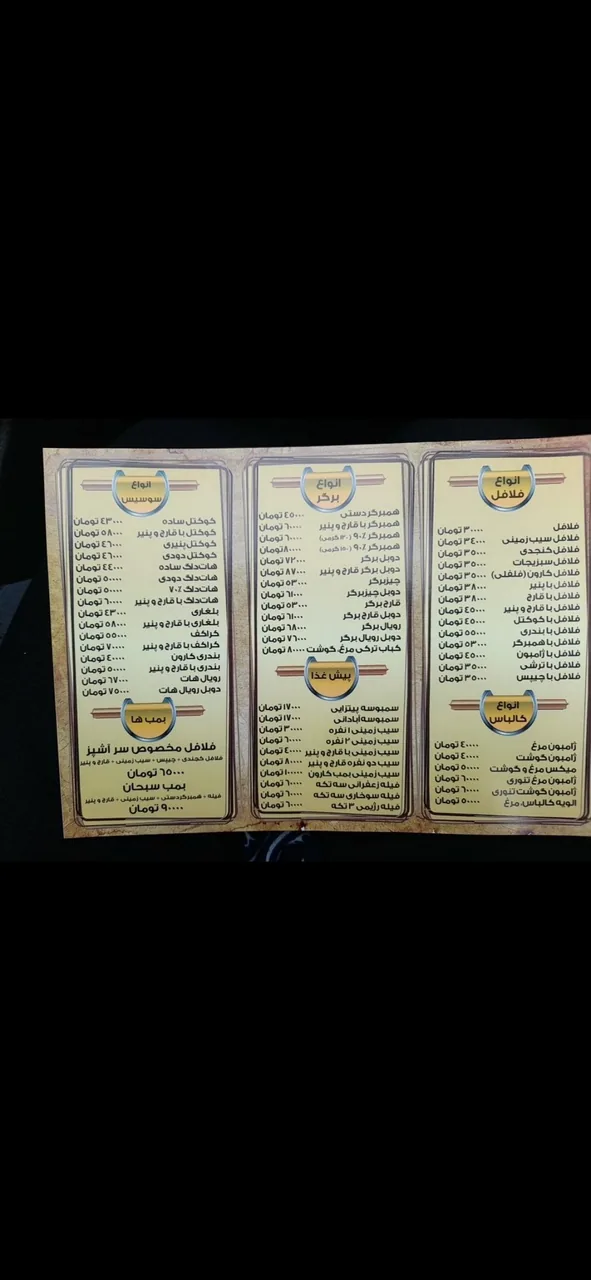 انواع
فلافل
فلافل ۳۰۰۰۰ تومان
فلافل سیب زمینی ۳۴۰۰۰ تومان
فلافل کنجدی ۳۵۰۰۰ تومان
فلافل سبزیجات ۳۵۰۰۰ تومان
فلافل کارون (فلفلی) ۳۵۰۰۰ تومان
فلافل با پنیر ۳۸۰۰۰ تومان
فلافل با قارچ ۳۸۰۰۰ تومان
فلافل با قارچ و پنیر ۴۵۰۰۰ تومان
فلافل با کوکتل ۴۵۰۰۰ تومان
فلافل با بندری ۵۵۰۰۰ تومان
فلافل با همبرگر ۵۳۰۰۰ تومان
فلافل با ژامبون ۴۵۰۰۰ تومان
فلافل با ترشی ۳۵۰۰۰ تومان
فلافل با چیپس ۳۵۰۰۰ تومان
انواع
کالباس
ژامبون مرغ ۴۰۰۰۰ تومان
ژامبون گوشت ۴۰۰۰۰ تومان
میکس مرغ و گوشت ۵۰۰۰۰ تومان
ژامبون مرغ تنوری ۶۰۰۰۰ تومان
ژامبون گوشت تنوری ۶۰۰۰۰ تومان
الویه کالباس، مرغ ۵۰۰۰۰ تومان
انواع
برگر
همبرگر دستی ۴۵۰۰۰ تومان
همبرگر با قارچ و پنیر ۶۰۰۰۰ تومان
همبرگر ۹۰٪ (۱۲۰ گرمی) ۶۰۰۰۰ تومان
همبرگر ۹۰٪ (۱۵۰ گرمی) ۸۰۰۰۰ تومان
دوبل برگر ۷۲۰۰۰ تومان
دوبل برگر قارچ و پنیر ۸۷۰۰۰ تومان
چیزبرگر ۵۳۰۰۰ تومان
دوبل چیزبرگر ۶۱۰۰۰ تومان
قارچ برگر ۵۳۰۰۰ تومان
دوبل قارچ برگر ۶۱۰۰۰ تومان
رویال برگر ۶۸۰۰۰ تومان
دوبل رویال برگر ۷۶۰۰۰ تومان
کباب ترکی مرغ، گوشت ۸۰۰۰۰ تومان
پیش غذا
سمبوسه پیتزایی ۱۷۰۰۰ تومان
سمبوسه آبادانی ۱۷۰۰۰ تومان
سیب زمینی ۱ نفره ۳۰۰۰۰ تومان
سیب زمینی ۲ نفره ۶۰۰۰۰ تومان
سیب زمینی با قارچ و پنیر ۴۰۰۰۰ تومان
سیب دو نفره قارچ و پنیر ۸۰۰۰۰ تومان
سیب زمینی بمب کارون ۱۰۰۰۰۰ تومان
فیله زعفرانی سه تکه ۶۰۰۰۰ تومان
فیله سوخاری سه تکه ۶۰۰۰۰ تومان
فیله رژیمی ۳ تکه ۶۰۰۰۰ تومان
انواع
سوسیس
کوکتل ساده ۴۳۰۰۰ تومان
کوکتل با قارچ و پنیر ۵۸۰۰۰ تومان
کوکتل پنیری ۴۶۰۰۰ تومان
کوکتل دودی ۴۶۰۰۰ تومان
هات‌داگ ساده ۴۴۰۰۰ تومان
هات‌داگ دودی ۵۰۰۰۰ تومان
هات‌داگ ۷۰٪ ۵۰۰۰۰ تومان
هات‌داگ با قارچ و پنیر ۶۰۰۰۰ تومان
بلغاری ۴۳۰۰۰ تومان
بلغاری با قارچ و پنیر ۵۸۰۰۰ تومان
کراکف ۵۵۰۰۰ تومان
کراکف با قارچ و پنیر ۷۰۰۰۰ تومان
بندری کارون ۴۰۰۰۰ تومان
بندری با قارچ و پنیر ۵۰۰۰۰ تومان
رویال هات ۶۷۰۰۰ تومان
دوبل رویال هات ۷۵۰۰۰ تومان
بمب ها
فلافل مخصوص سر آشپز
فلافل کنجدی + چیپس + سیب زمینی + قارچ و پنیر
۶۵۰۰۰ تومان
بمب سبحان
فیله + همبرگر دستی + سیب زمینی + قارچ و پنیر
۹۰۰۰۰ تومان